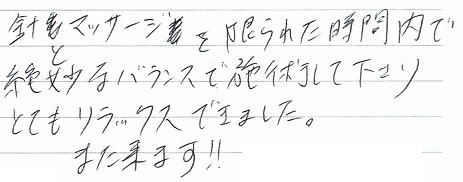 針とマッサージを限られた時間内で
絶妙なバランスで施術して下さり
とてもリラックスできました。
また来ます!!